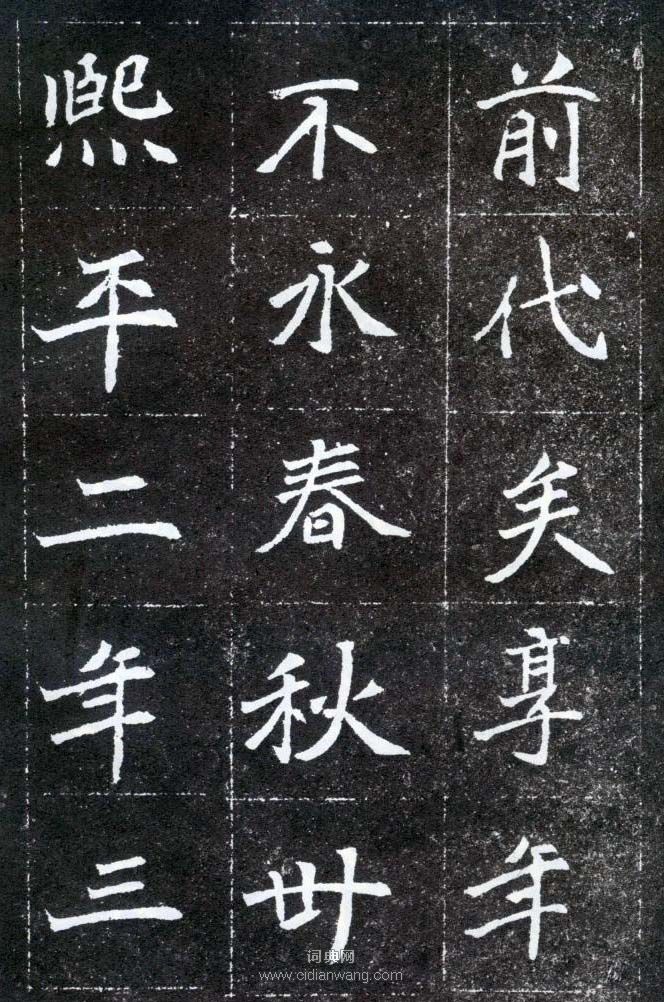 前代矣享年
不永春秋卅
熙平二年三
词典网
www.cidianwang.com